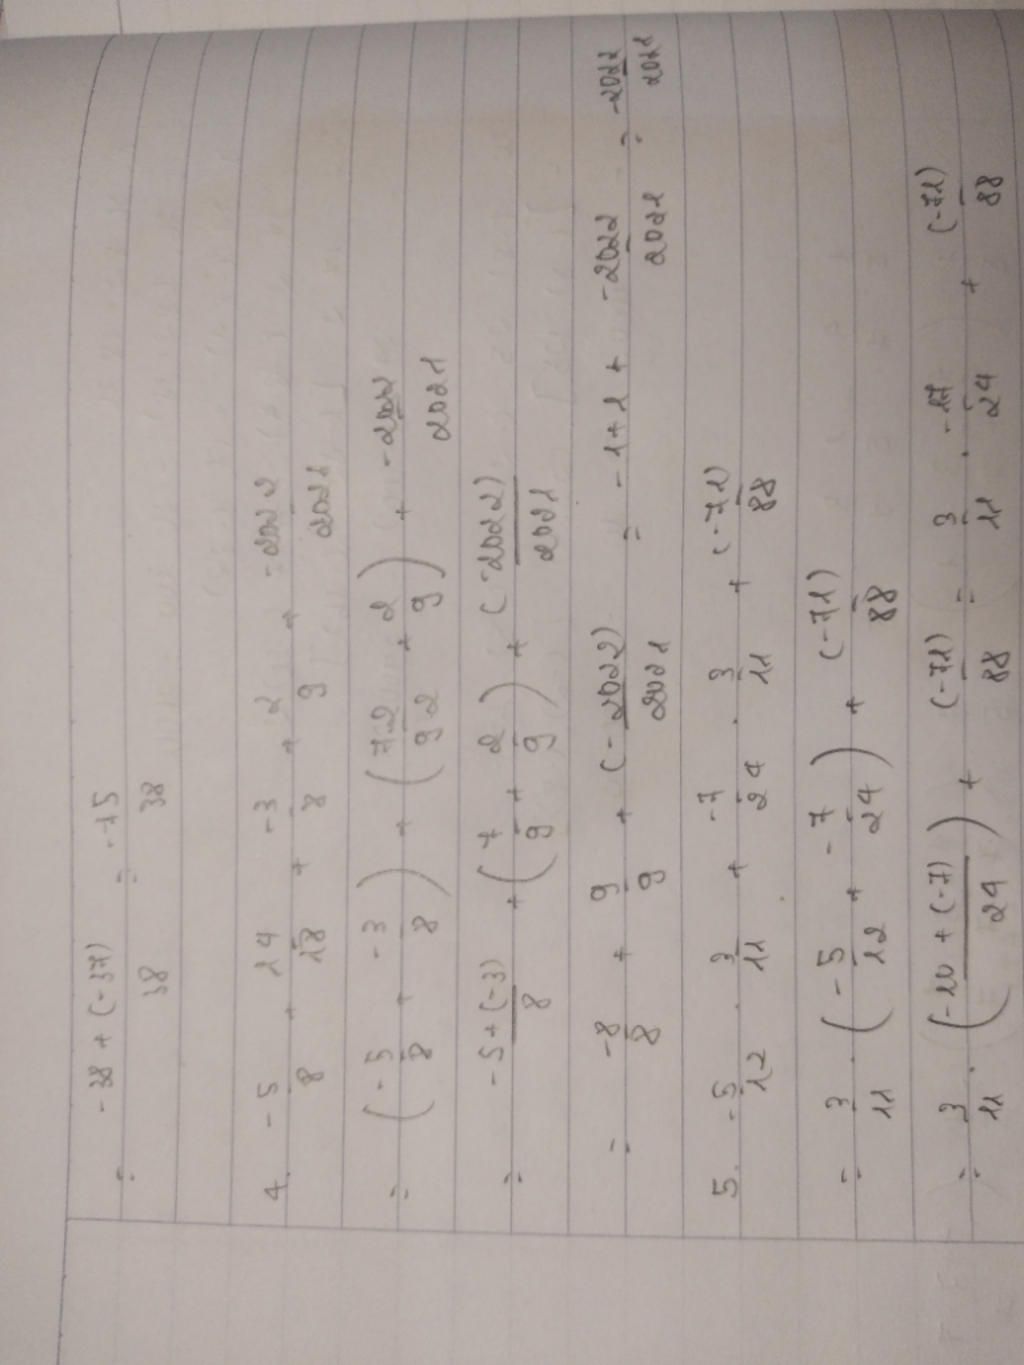 = -38 + (-37) / 38 = -75 / 38
4. -5/8 + 14/18 + -3/8 + 2/9 + -2022/2021
= (-5/8 + -3/8) + (7.2/9.2 + 2/9) + -2022/2021
= -5+(-3)/8 + (7/9 + 2/9) + (-2022)/2021
= -8/8 + 9/9 + (-2022)/2021 = -1+1+ -2022/2021 = -2022/2021
5. -5/12 . 3/11 + -7/24 . 3/11 + (-71)/88
= 3/11 . (-5/12 + -7/24) + (-71)/88
= 3/11 . (-10+(-7)/24) + (-71)/88 = 3/11 . -17/24 + (-71)/88